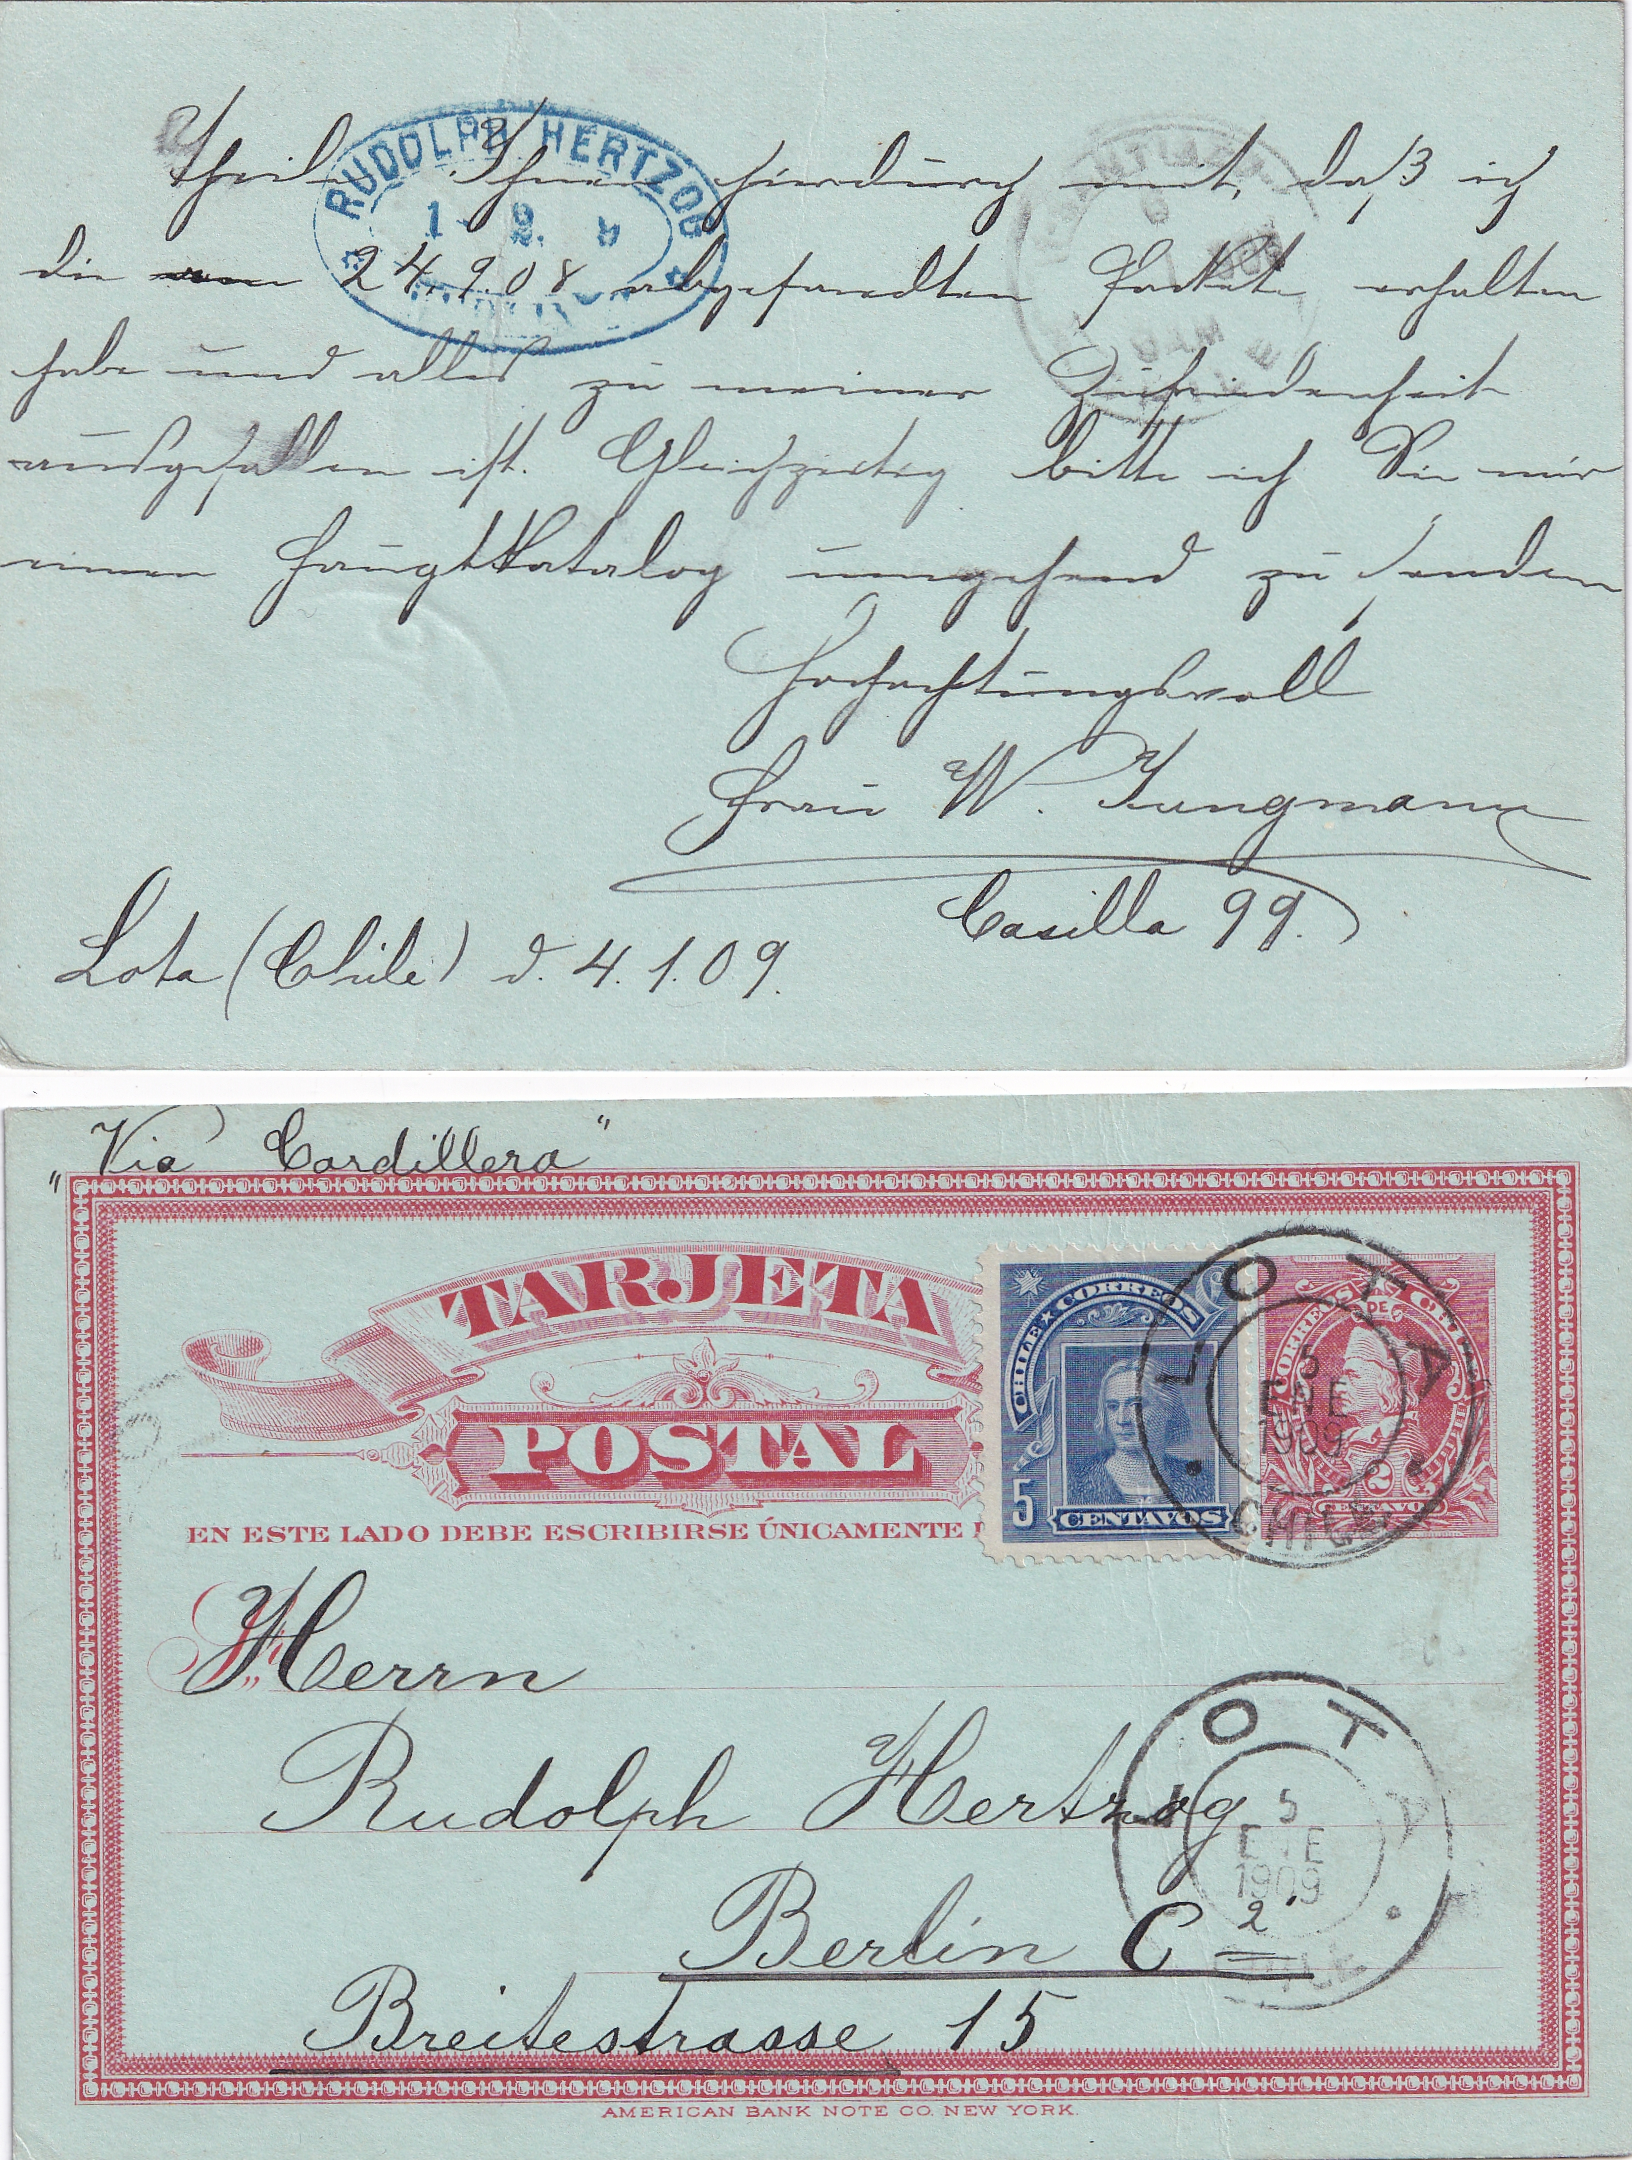 Theile Ihnen hierdurch mit, daß ich
die 24.9.08 abgesandten Packete erhalten
habe und alles zu meiner Zufriedenheit
ausgefallen ist. Gleichzeitig bitte ich Sie mir
einen Hauptkatalog umgehend zu senden
Hochachtungsvoll
Frau W. Jungmann
Casilla 99.
Lota (Chile) d. 4.1.09.
RUDOLPH HERTZOG
1 2
SANTIAGO
6
1909
9 AM
CHILE
"Via Cordillera"
TARJETA
POSTAL
EN ESTE LADO DEBE ESCRIBIRSE ÚNICAMENTE
CHILE CORREOS
5
CENTAVOS
CORREOS DE CHILE
2
CENTAVOS
LOTA
5
ENE
1909
CHILE
Herrn
Rudolph Hertzog
Berlin C 2
Breitestrasse 15
LOTA
5
ENE
1909
CHILE
AMERICAN BANK NOTE CO. NEW YORK.